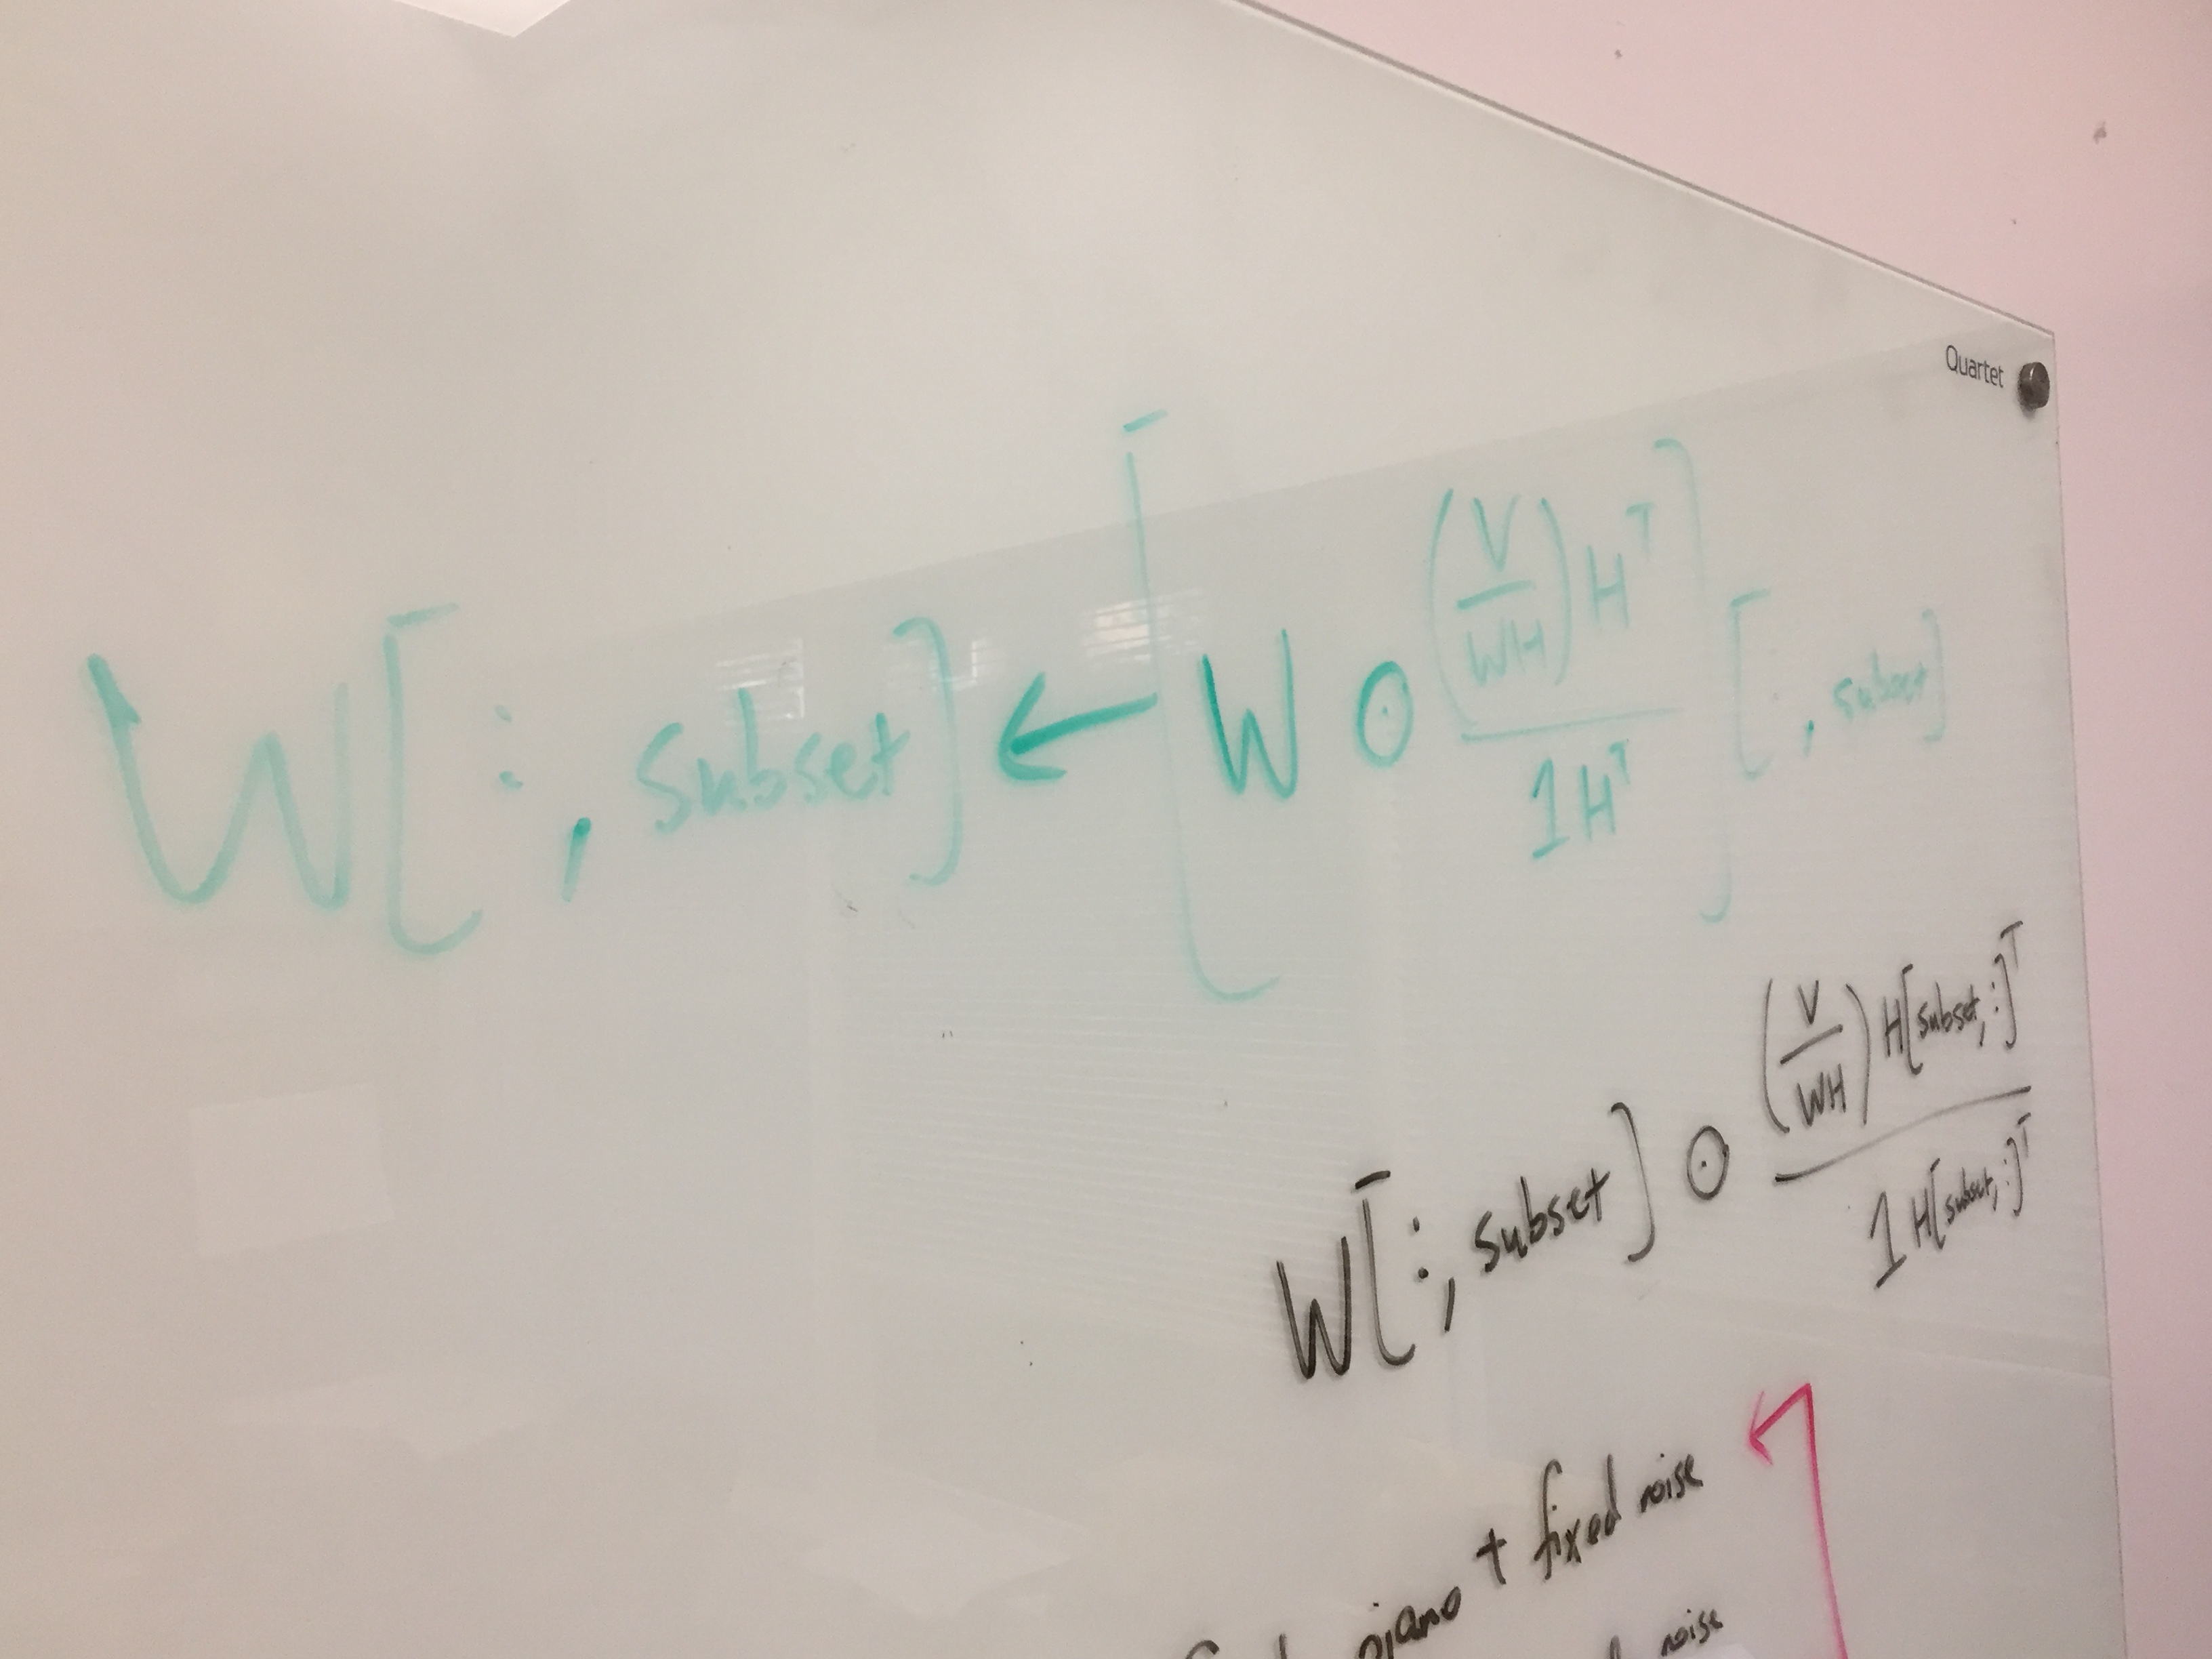 Quartet
W[:, subset] ← [W ⊙ ((V/WH) H^T)/(1H^T)][:, subset]
W[:, subset] ⊙ ((V/WH) H[subset, :]^T)/(1H[subset, :]^T)
piano + fixed noise
noise